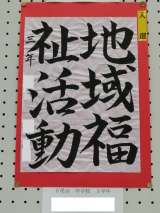 入選
地域福
祉活動
三年